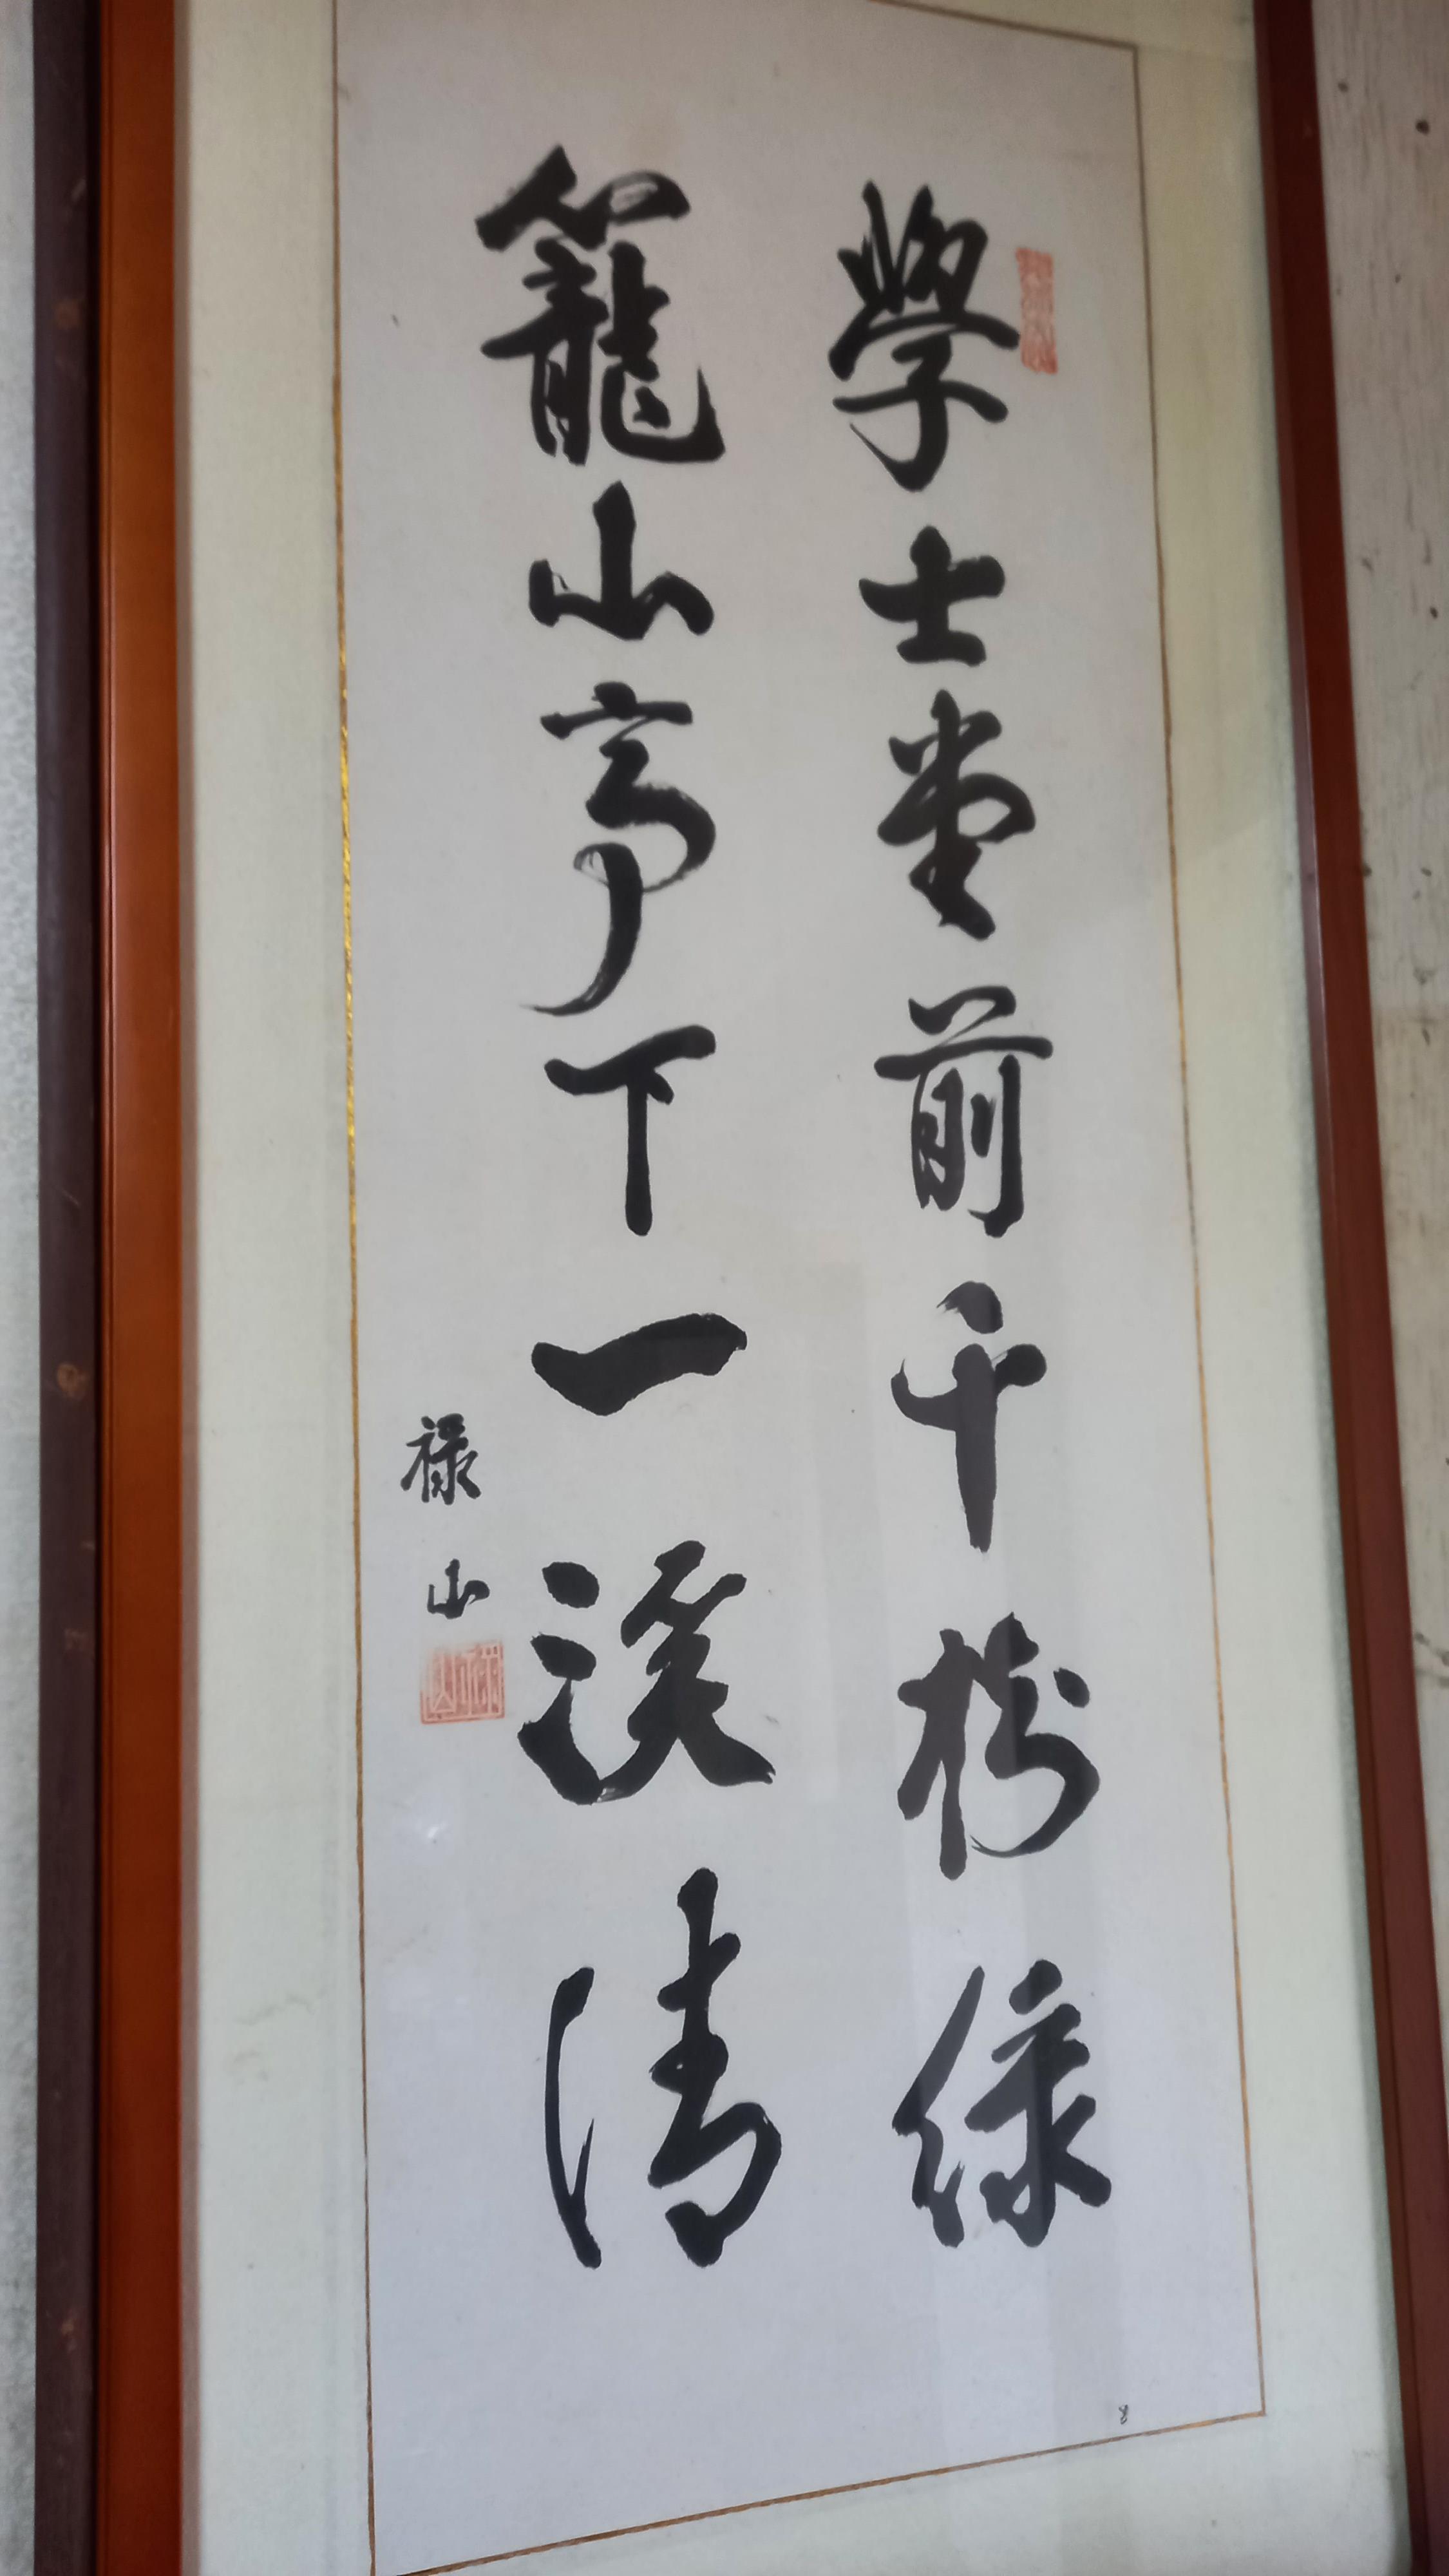 學士堂前千樹綠
籠山亭下一溪清
祿山
8